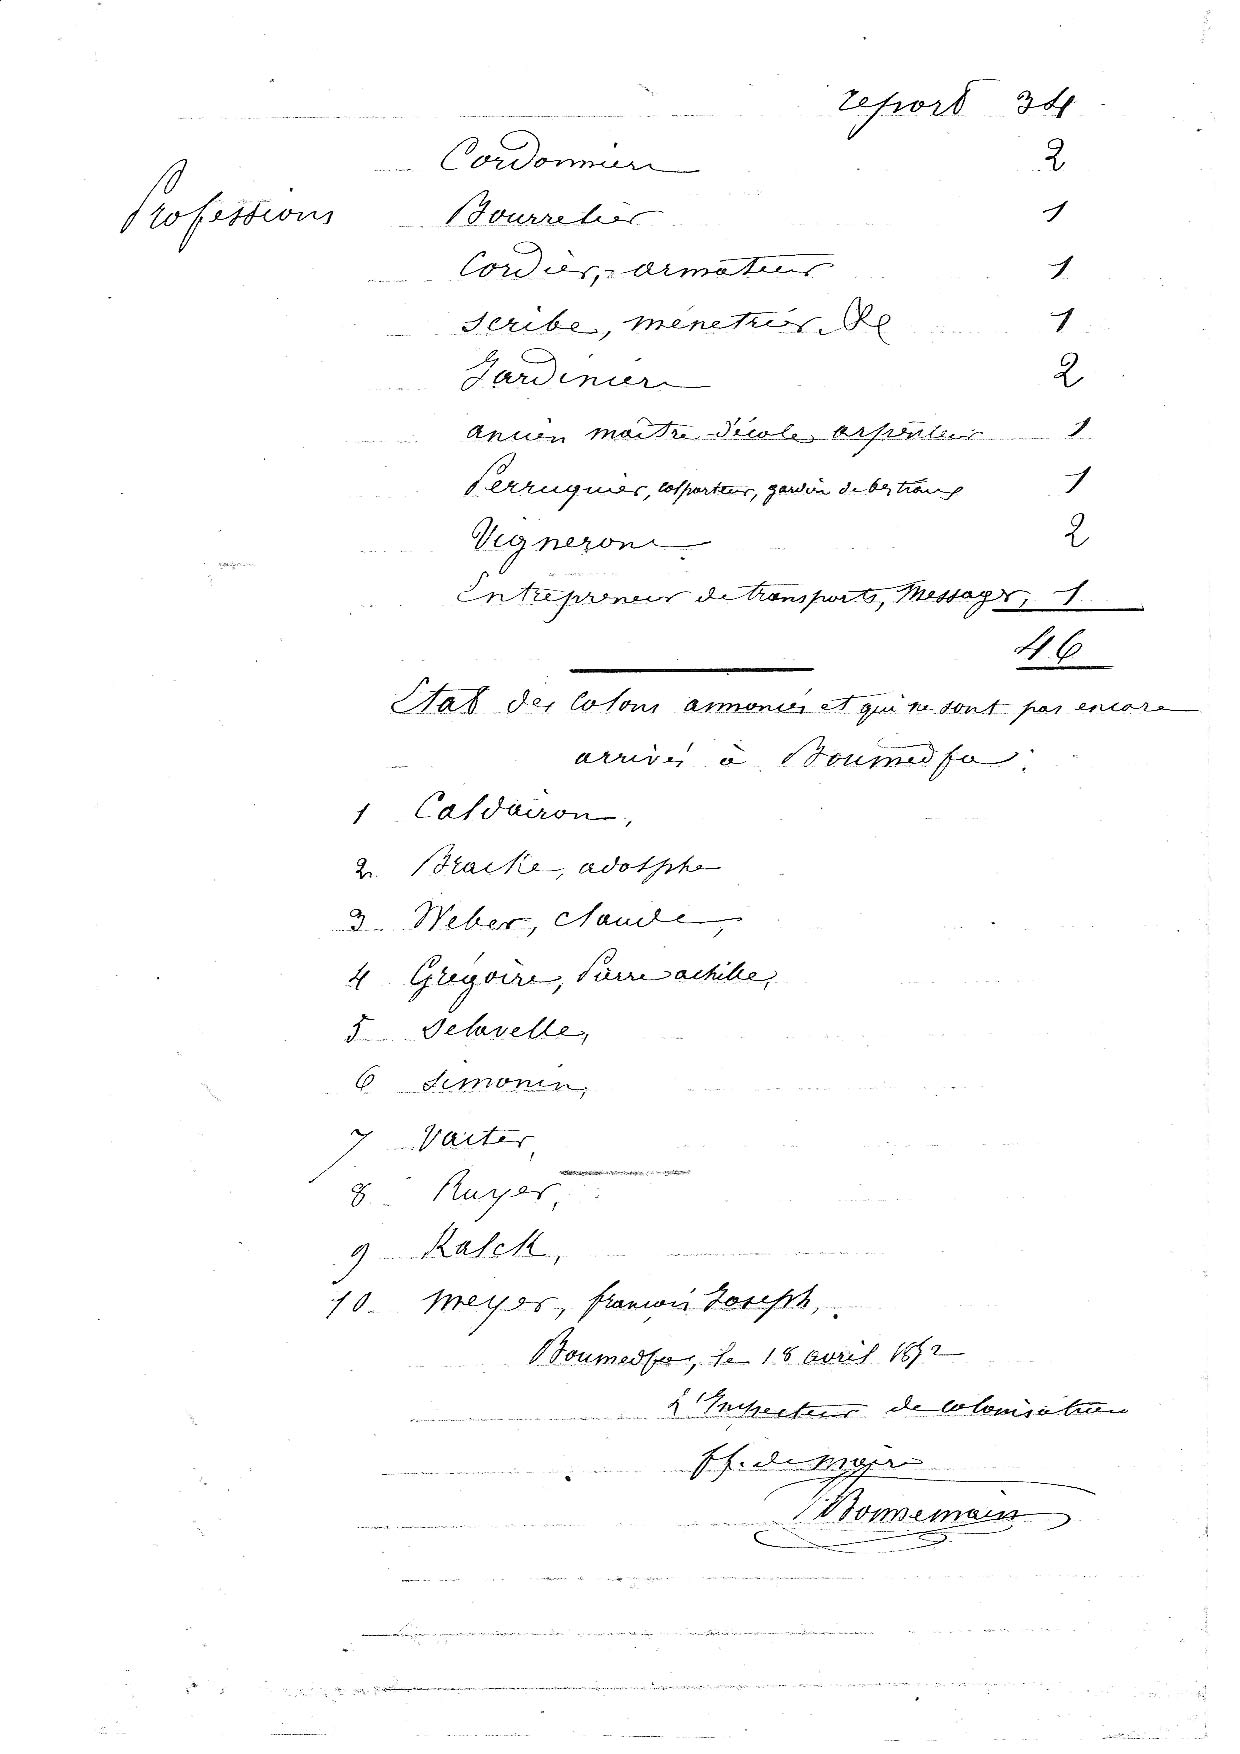 report 34
Cordonniers 2
Professions Bourrelier 1
Cordier, armateur 1
scribe, ménetrier &c 1
Jardiniers 2
ancien maître d'école, arpenteur 1
Perruquier, colporteur, gardien de bestiaux 1
Vignerons 2
Entrepreneur de transports, Messager, 1
46
Etat des colons annoncés et qui ne sont pas encore
arrivés à Boumedfa :
1 Caldairon,
2 Bracke, adolphe
3 Weber, claude,
4 Grégoire, Pierre achille,
5 Delavelle,
6 Simonin,
7 Vaiter,
8 Ruyer,
9 Kalck,
10 Meyer, françois Joseph,
Boumedfa, le 18 avril 1852
L'Inspecteur de colonisation
ff. de Maire
Bonnemain